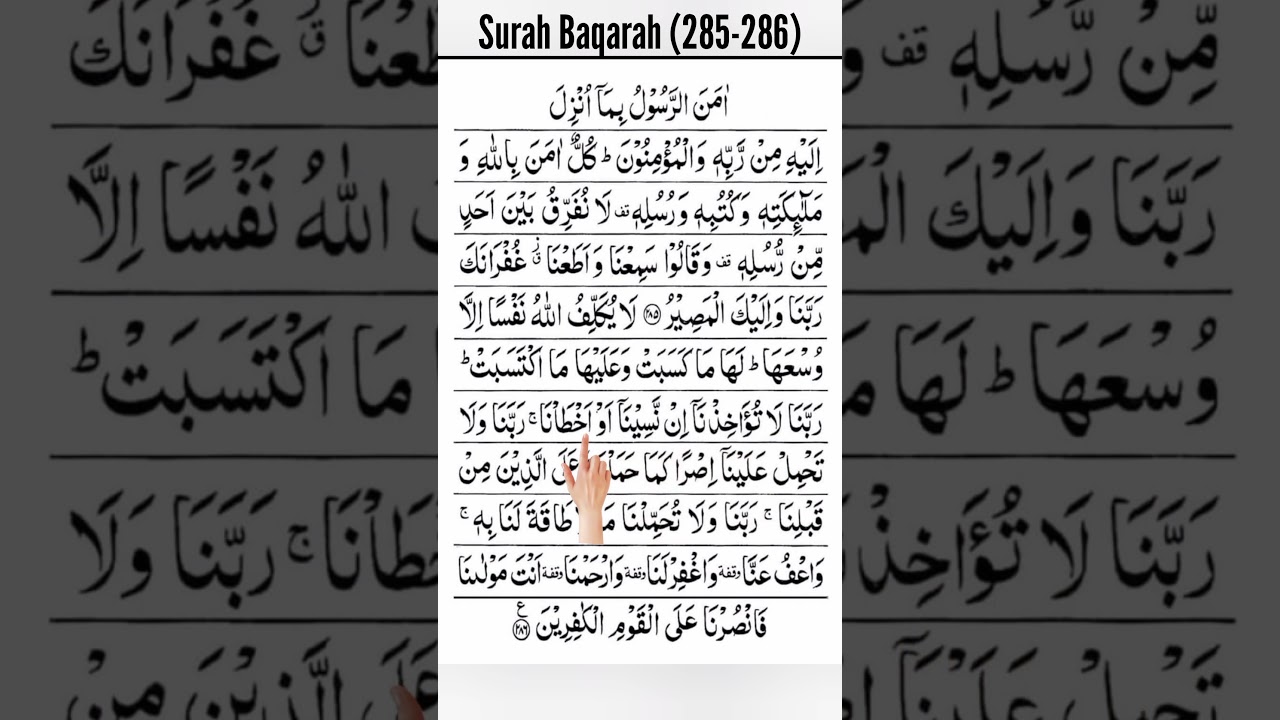 Surah Baqarah (285-286)
اٰمَنَ الرَّسُوْلُ بِمَاۤ اُنْزِلَ
اِلَيْهِ مِنْ رَّبِّهٖ وَالْمُؤْمِنُوْنَ ؕ كُلٌّ اٰمَنَ بِاللّٰهِ وَ
مَلٰٓئِكَتِهٖ وَكُتُبِهٖ وَرُسُلِهٖ قف لَا نُفَرِّقُ بَيْنَ اَحَدٍ
مِّنْ رُّسُلِهٖ قف وَقَالُوْا سَمِعْنَا وَاَطَعْنَا ز ق غُفْرَانَكَ
رَبَّنَا وَاِلَيْكَ الْمَصِيْرُ ۝۲۸۵ لَا يُكَلِّفُ اللّٰهُ نَفْسًا اِلَّا
وُسْعَهَا ؕ لَهَا مَا كَسَبَتْ وَعَلَيْهَا مَا اكْتَسَبَتْ ؕ
رَبَّنَا لَا تُؤَاخِذْنَاۤ اِنْ نَّسِيْنَاۤ اَوْ اَخْطَاْنَا ۚ رَبَّنَا وَلَا
تَحْمِلْ عَلَيْنَاۤ اِصْرًا كَمَا عَلَى الَّذِيْنَ مِنْ
قَبْلِنَا ۚ رَبَّنَا وَلَا تُحَمِّلْنَا طَاقَةَ لَنَا بِهٖ ۚ
وَاعْفُ عَنَّا وقفة وَاغْفِرْ لَنَا وقفة وَارْحَمْنَا وقفة اَنْتَ مَوْلٰىنَا
فَانْصُرْنَا عَلَى الْقَوْمِ الْكٰفِرِيْنَ ۝۲۸۶ ع